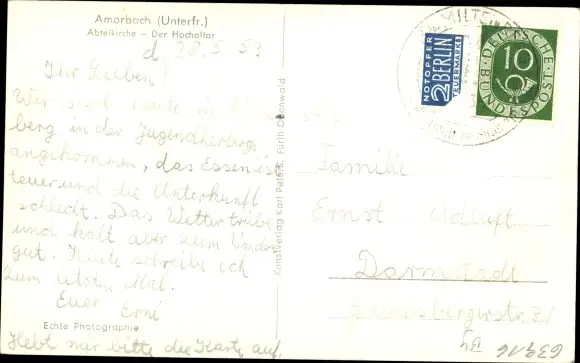 Amorbach (Unterfr.)
Abteikirche - Der Hochaltar
d. 28.5.53
Ihr Lieben!
Wir sind heute in
berg in der Jugendherberge
angekommen, das Essen ist
teuer und die Unterkunft
schlecht. Das Wetter trübe
und kalt aber zum Wandern
gut. Heute schreibe ich
zum letzten Mal.
Euer Erni
Echte Photographie
Hebt mir bitte die Karte auf.
Kunstverlag Karl Peters, Fürth Odenwald
NOTOPFER
2 BERLIN
STEUERMARKE
DEUTSCHE
BUNDESPOST
10
MILTENBERG
An
Familie
Ernst Udluft
Darmstadt